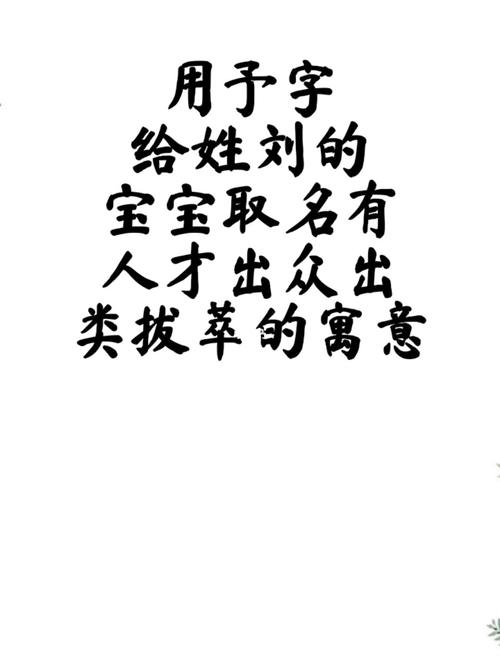 用予字
给姓刘的
宝宝取名有
人才出众出
类拔萃的寓意